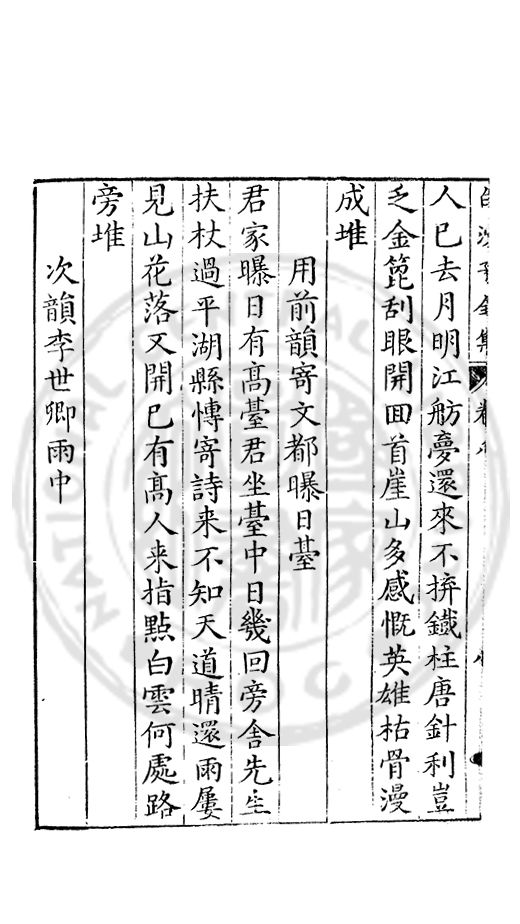 人已去月明江舫夢還來不擠鐵柱唐針利豈
乏金箆刮眼開回首崖山多感慨英雄枯骨漫
成堆
用前韻寄文都曝日臺
君家曝日有高臺君坐臺中日幾回旁舍先生
扶杖過平湖縣慱寄詩来不知天道晴還雨屢
見山花落又開已有高人来指點白雲何處路
旁堆
次韻李世卿雨中